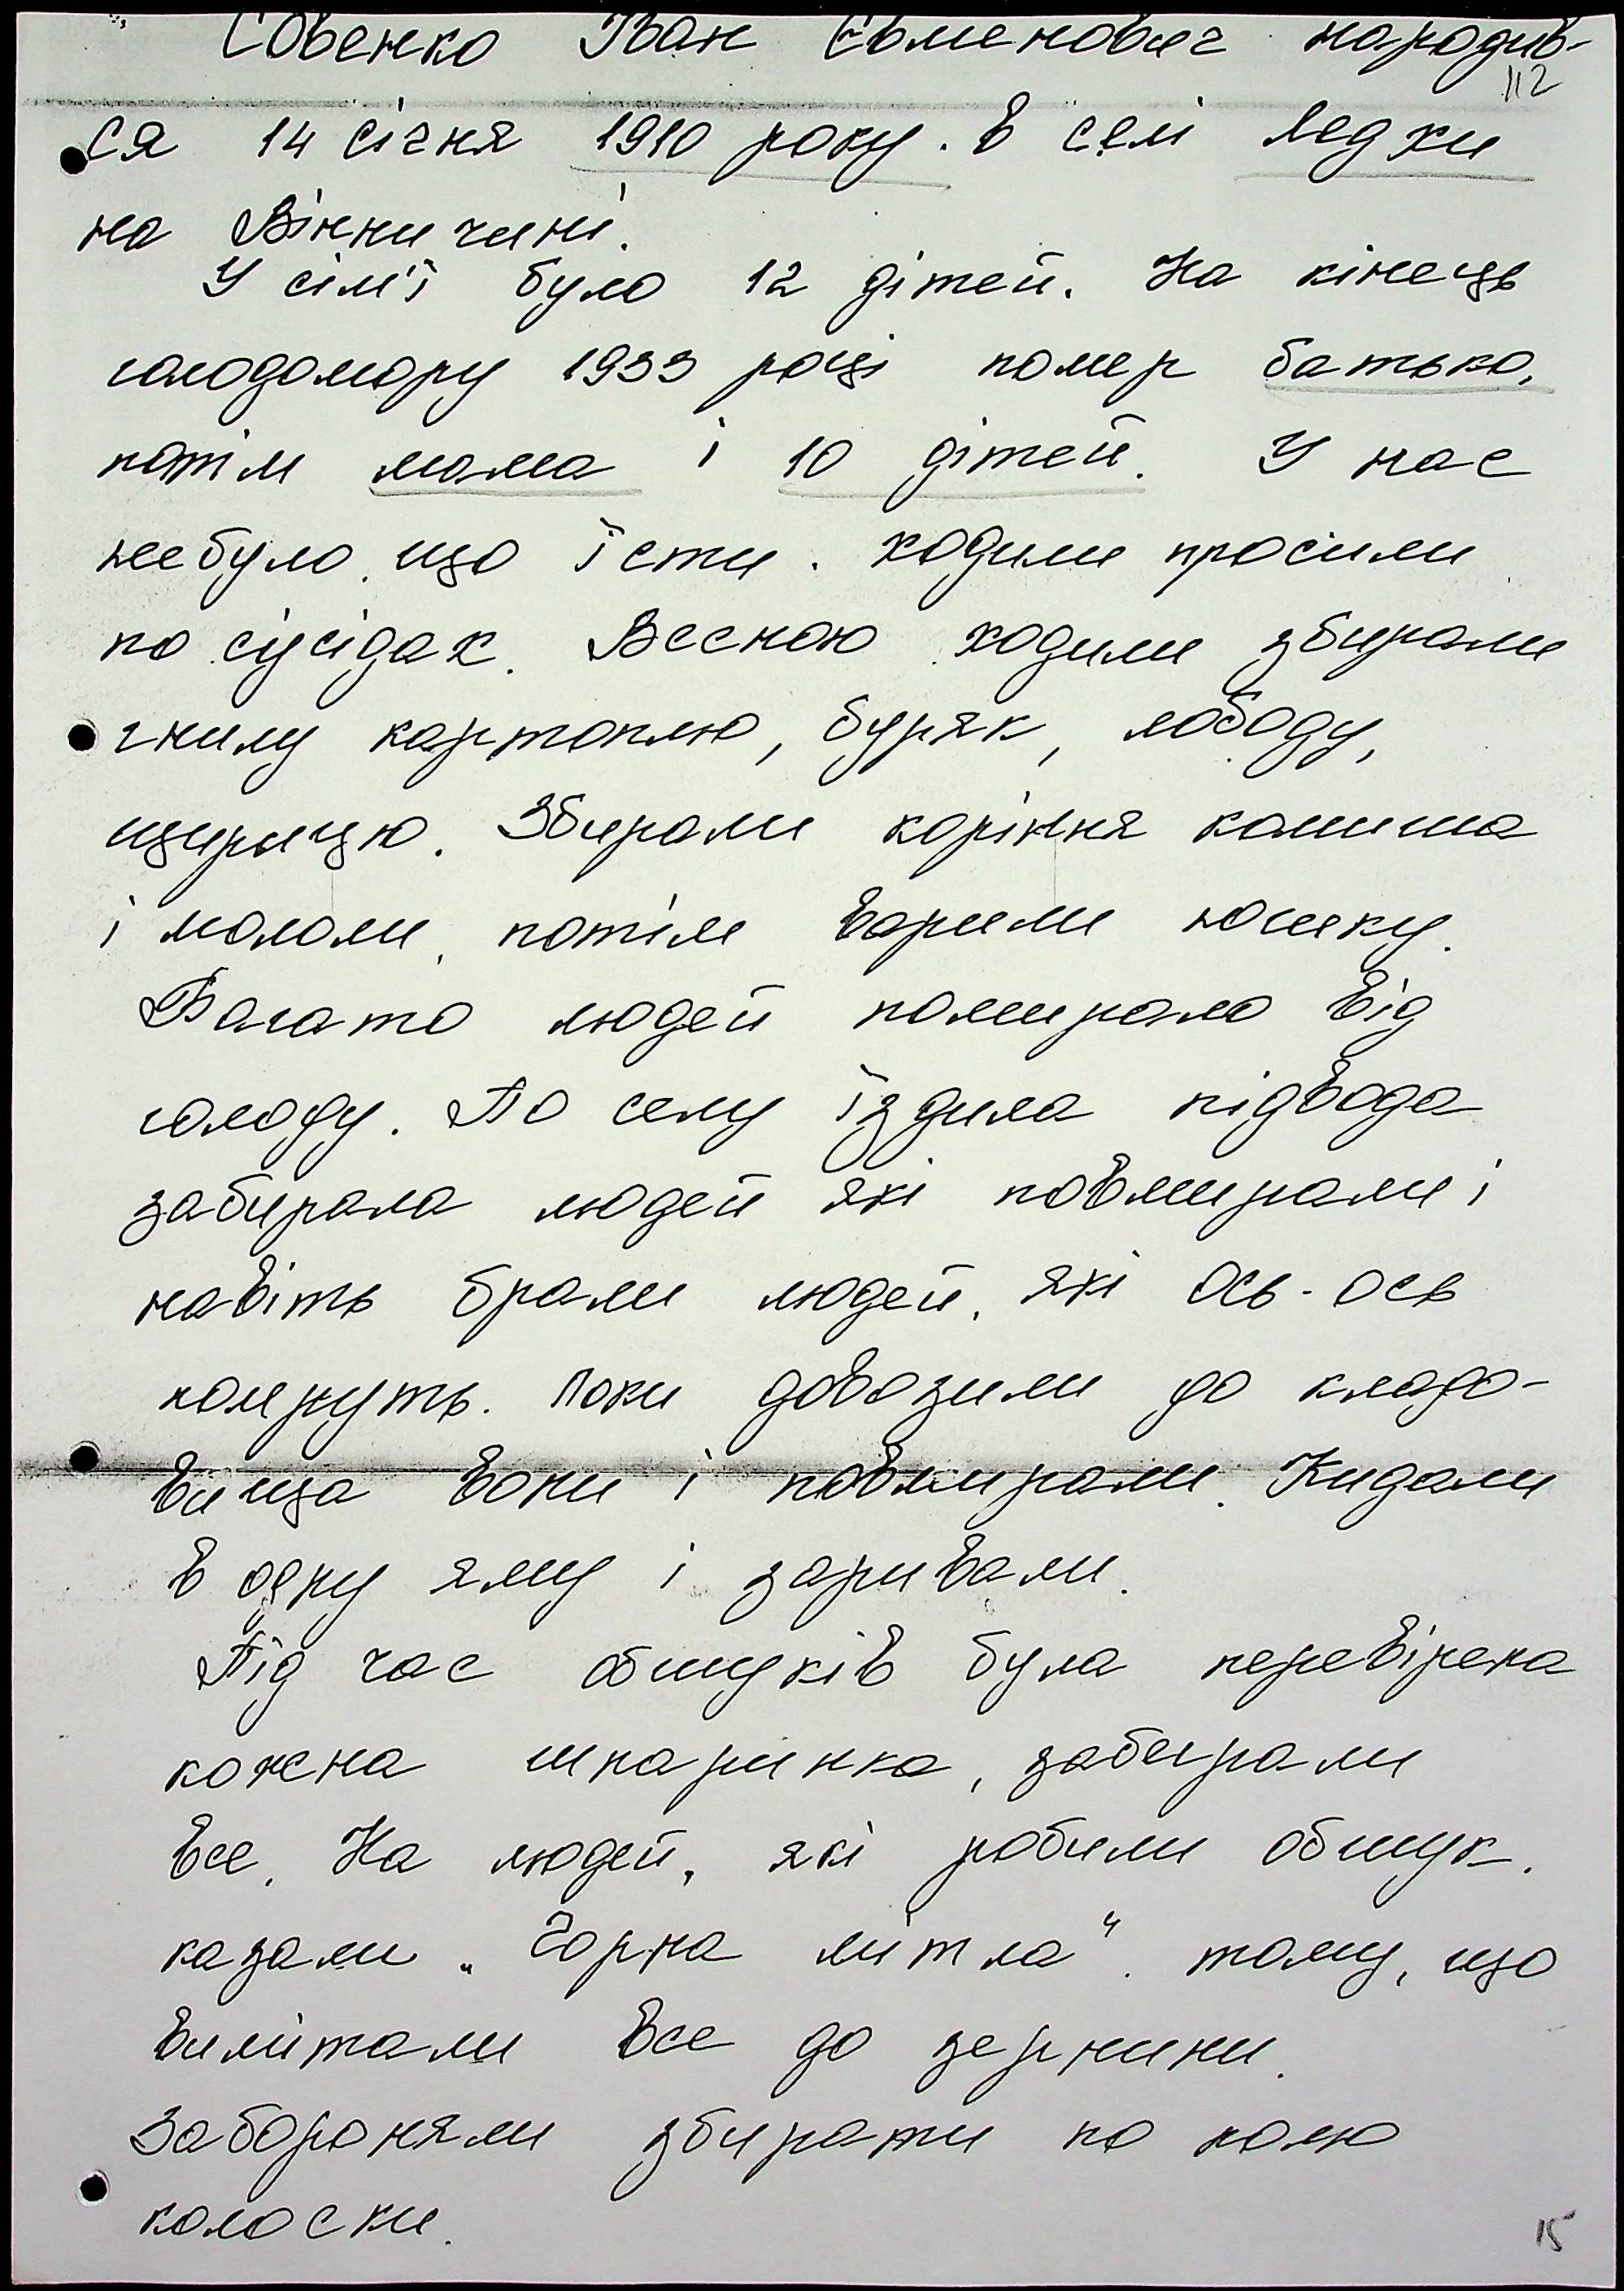 Совенко Іван Євменович народив-
112
ся 14 січня 1910 року. в селі Ледки
на Вінничині.
У сім'ї було 12 дітей. На кінець
голодомору 1933 році помер батько,
потім мама і 10 дітей. У нас
не було, що їсти. ходили просили
по сусідах. Весною ходили збирали
гнилу картоплю, буряк, лободу,
щирицю. Збирали коріння камиша
і мололи, потім варили юшку.
Багато людей помирало від
голоду. По селу їздила підвода
забирала людей які повмирали і
навіть брали людей, які ось-ось
помруть. Поки довозили до кладо-
вища вони і повмирали. Кидали
в одну яму і заривали.
Під час обшуків була перевірена
кожна шпаринка, забирали
все. На людей, які робили обшук.
казали „Чорна мітла". тому, що
вимітали все до зернини.
Забороняли збирати по полю
колоски.
15